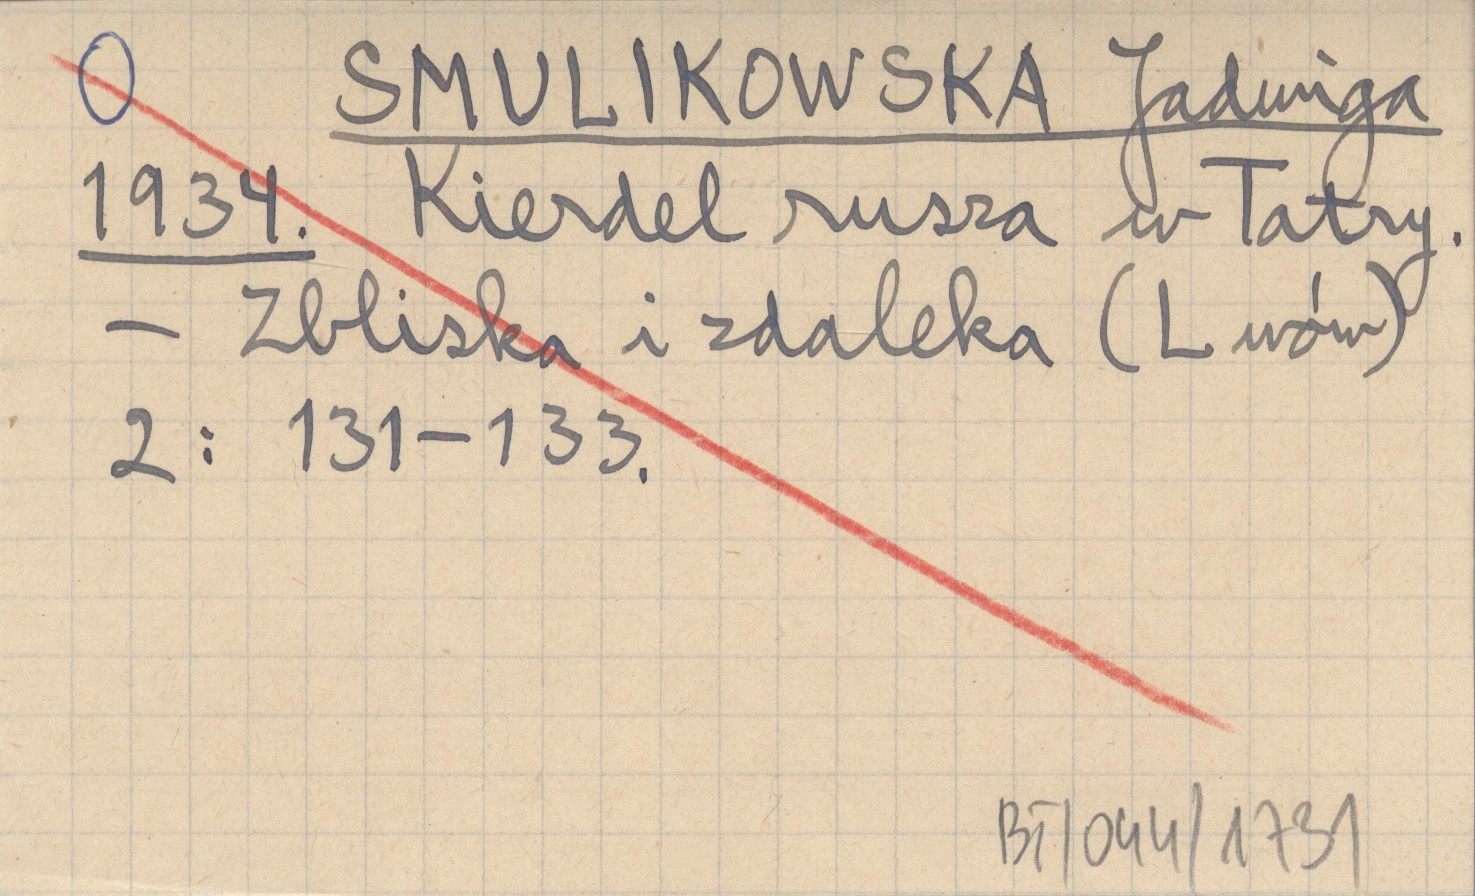 0 SMULIKOWSKA Jadwiga
1934. Kierdel rusza w Tatry.
- Zbliska i zdaleka (Lwów)
2: 131-133.
BT/044/1731